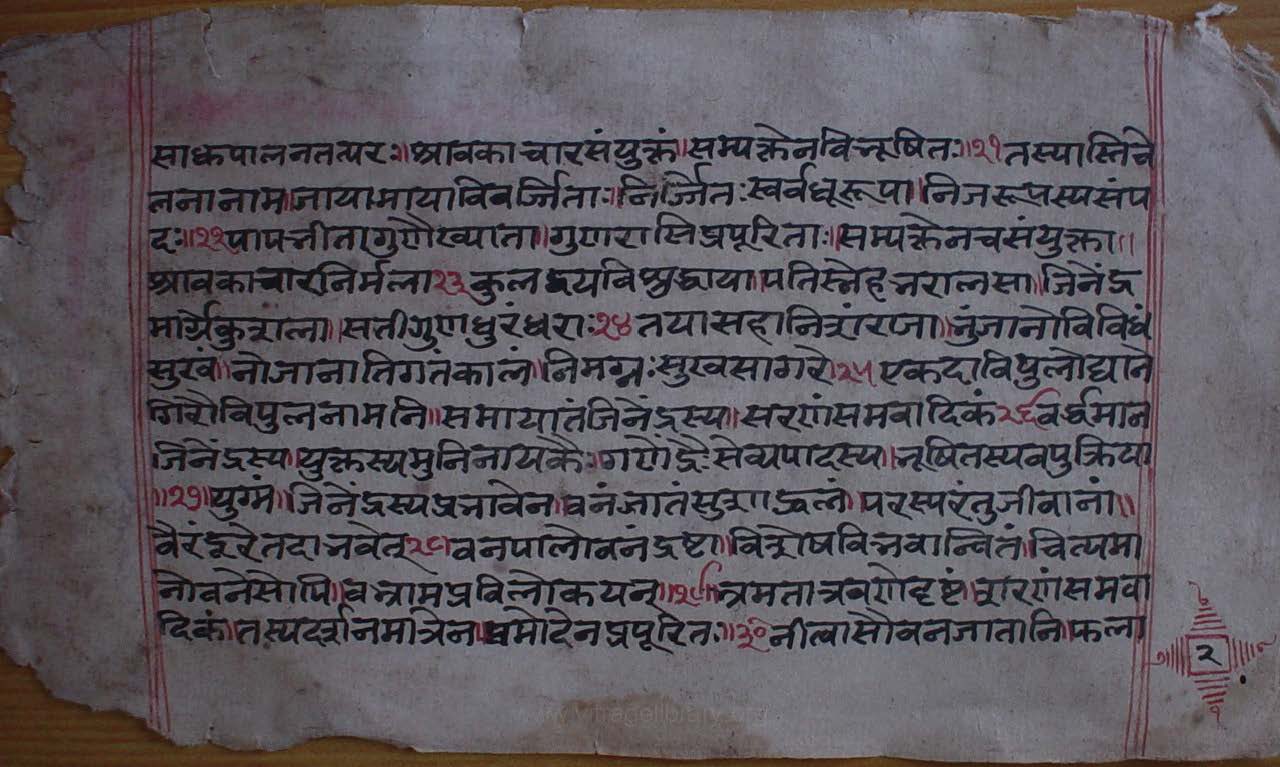 साधकपालनतत्परः॥श्रावकाचारसंयुक्तं॥सम्यक्त्वेनविभूषितः॥२१तस्यास्तिचे
तनानाम।जायामायाविवर्जिताः॥निर्ज्जितःस्वर्वधूरूपा॥निजरूपस्यसंप
दः॥२२पापभीतागुणैख्याता॥गुणरासिप्रपूरिताः॥सम्यक्त्वेनचसंयुक्ता॥
श्रावकाचारनिर्मला२३कुलद्वयविशुद्धाया॥पतिस्नेहभरालसा॥जिनेंद्र
मार्ग्गकुशला॥सतीगुणधुरंधराः२४तयासहानिशंराजा॥भुंजानोविविधं
सुखं॥नोजानातिगतंकालं॥निमग्नःसुखसागरे२५एकदाविपुलोद्याने
गिरौविपुलनामनि॥समायातंजिनेंद्रस्य॥सरणंसमवादिकं२६वर्द्धमान
जिनेंद्रस्य॥युक्तस्यमुनिनायकैः॥गणेंद्रैःसेव्यपादस्य॥भूषितस्यवपुक्रिया
॥२७॥युग्मं॥जिनेंद्रस्यप्रभावेन॥वनंजातंसुशाद्वलं॥परस्परंतुजीवानां॥
वैरंदूरेतदाभवेत्२८॥वनपालोवनंद्रष्टा॥विशेषविभवान्वितं॥चित्यमा
नोवनेसोपि॥बभ्रामप्रविलोकयन्॥२९॥भ्रमतात्रवणेदृष्टं॥शरणंसमवा
दिकं॥तस्यदर्शनमात्रेन॥प्रमोदेनप्रपूरितः॥३०नीत्वासौवनजातानि॥फला
२